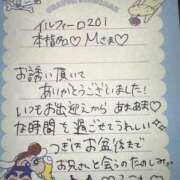 イルフィーロ201
本指名♡Mさま♡
お誘い頂いて
ありがとうございました!
いつもお出迎えから あまあま♡
な時間を過ごせてうれしい♡
つぎはお盆後まで
お兄さんと会うのたのしみ